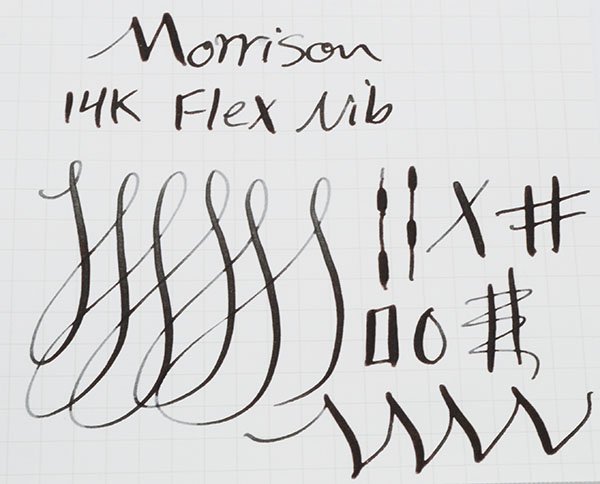 Morrison
14K Flex Nib